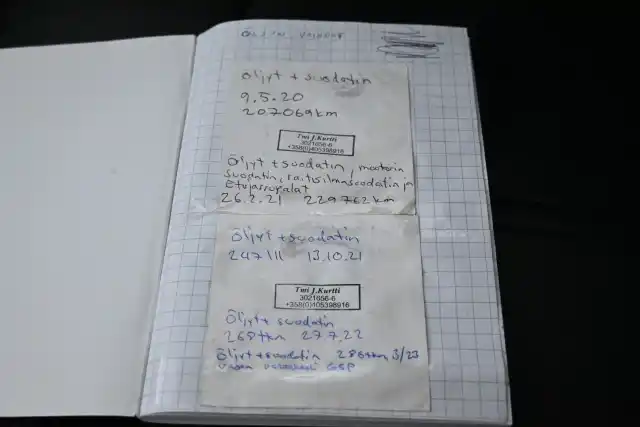 Öljyt + suodatin
9.5.20
207069km
Tmi J.Kurtti
3021656-6
+358(0)405398916
Öljyt + suodatin, moottorin
suodatin, raitisilmasuodatin ja
Etujarrupalat
26.2.21 229762 km
Öljyt + suodatin
247111 13.10.21
Tmi J.Kurtti
3021656-6
+358(0)405398916
Öljyt + suodatin
268tkm 27.7.22
Öljyt + suodatin 286tkm 3/23